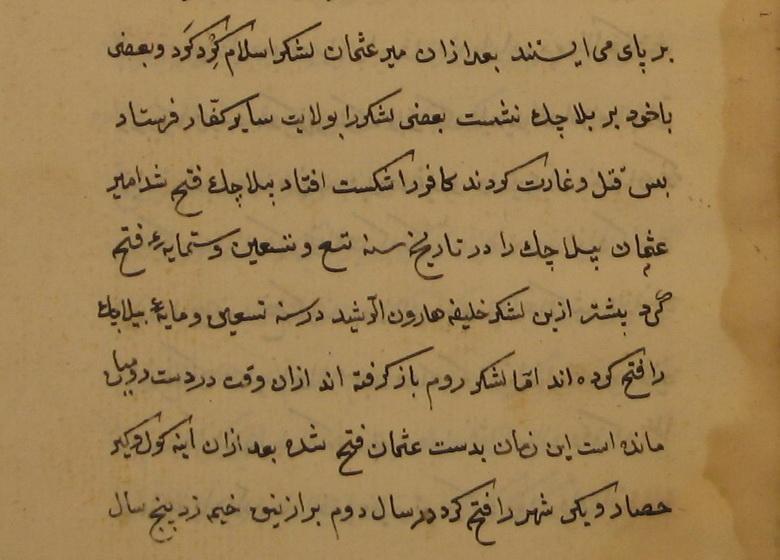 بر پای می ایستند بعد ازان میر عثمان لشکر اسلام کرد کرد و بعضی
باخود بر بلاجك نشست بعضی لشکر را بولایت سایر کفّار فرستاد
بس قتل و غارت کردند کافر را شکست افتاد بیلاجك فتح شد امیر
عثمان بیلاجك را در تاریخ سنه تسع و تسعین و ستمایه فتح
کرد بیشتر ازین لشکر خلیفه هارون الرشید در سنه تسعین و مایه
را فتح کرده اند امّا لشکر روم باز گرفته اند ازان وقت در دست رومیان
مانده است این زمان بدست عثمان فتح شده بعد ازان اینه کول و یکر
حصار و یکی شهر را فتح کرد در سال دوم بر ازنیق خیمه زد پنج سال